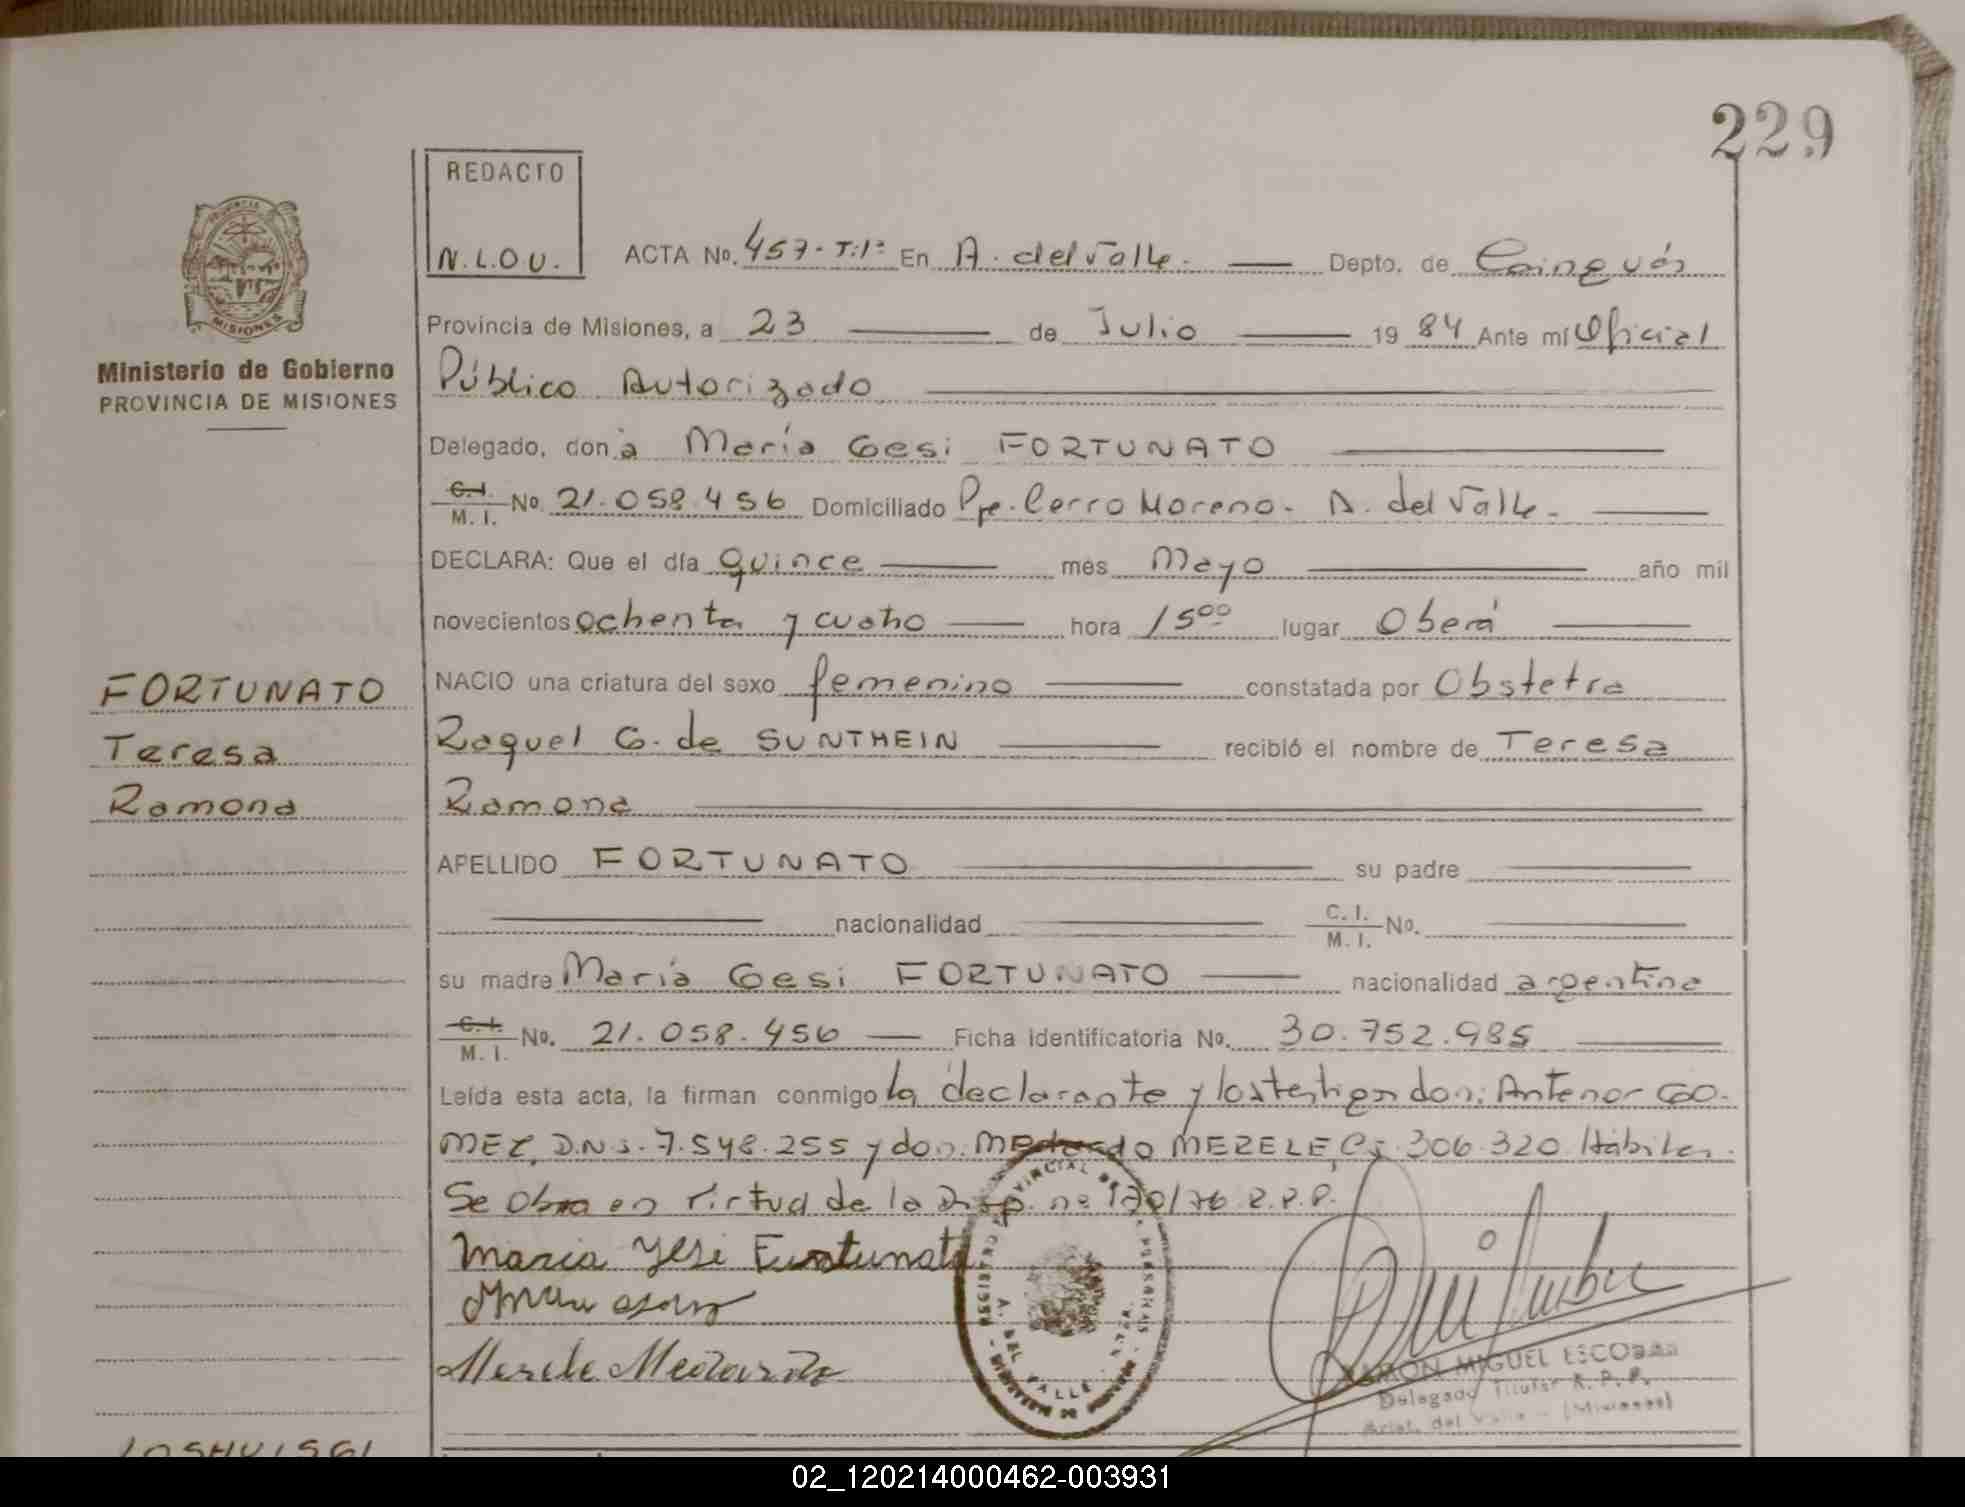 229
REDACTO
N.L.O.U.
ACTA No. 457-T:1º En A. del Valle. Depto. de Cainguás
Provincia de Misiones, a 23 de Julio 19 84 Ante mí Oficial
Público Autorizado
PROVINCIA
MISIONES
Ministerio de Gobierno
PROVINCIA DE MISIONES
Delegado, don a María Gesi FORTUNATO
C.I.
M. I. No. 21.058.456 Domiciliado Pje. Cerro Moreno - A. del Valle -
DECLARA: Que el día quince mes Mayo año mil
novecientos ochenta y cuatro hora 15 00 lugar Oberá
NACIO una criatura del sexo femenino constatada por Obstetra
Raquel G. de SUNTHEIN recibió el nombre de Teresa
Ramona
FORTUNATO
Teresa
Ramona
APELLIDO FORTUNATO su padre
nacionalidad C. I. No.
M. I.
su madre María Gesi FORTUNATO nacionalidad argentina
C.I.
M. I. No. 21.058.456 Ficha Identificatoria No. 30.752.985
Leída esta acta, la firman conmigo la declarante y los testigos don: Antenor GO-
MEZ, D.N.I. 7.548.255 y don: Medardo MEZELE, C.I. 306.320 Hábiles.
Se obra en virtud de la Disp. nº 170/76 R.P.P.
Maria Yesi Furtunato
Mersele Medardo
REGISTRO PROVINCIAL DE PERSONAS
A. DEL VALLE
RAMON MIGUEL ESCOBAR
Delegado Titular R. P. P.
Arist. del Valle - (Misiones)
02_120214000462-003931